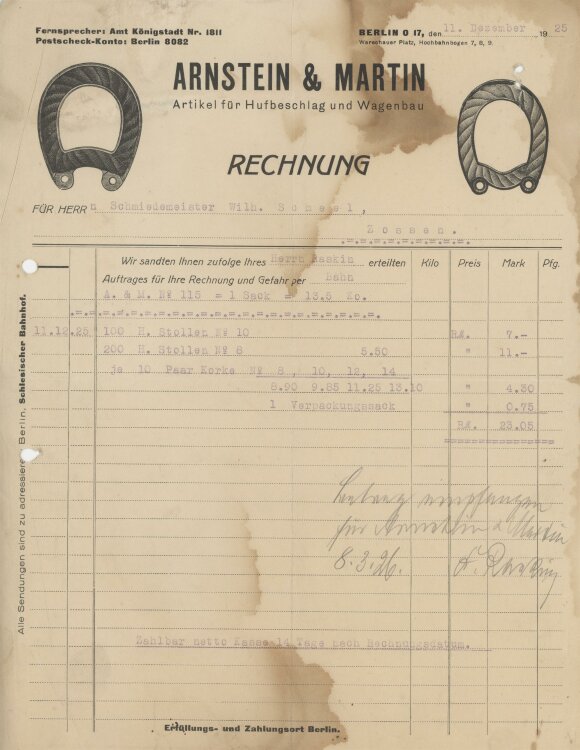 Fernsprecher: Amt Königstadt Nr. 1811
Postscheck-Konto: Berlin 8082
BERLIN O 17, den 11. Dezember 1925
Warschauer Platz, Hochbahnbogen 7, 8, 9.
ARNSTEIN & MARTIN
Artikel für Hufbeschlag und Wagenbau
RECHNUNG
FÜR HERR n Schmiedemeister Wilh.
Zossen.
Wir sandten Ihnen zufolge Ihres Herrn Raskin erteilten
Auftrages für Ihre Rechnung und Gefahr per Bahn
Kilo Preis Mark Pfg.
A. & M. № 115 = 1 Sack = 13.5 Ko.
11.12.25 100 H. Stollen № 10 RM. 7.-
200 H. Stollen № 8 5.50 " 11.-
je 10 Paar Korke № 8, 10, 12, 14
8.90 9.85 11.25 13.10 " 4.30
1 Verpackungssack " 0.75
RM. 23.05
Betrag empfangen
für Arnstein & Martin
8.3.26.
Zahlbar netto Kasse 14 Tage nach Rechnungsdatum.
Erfüllungs- und Zahlungsort Berlin.
Alle Sendungen sind zu adressieren: Berlin, Schlesischer Bahnhof.